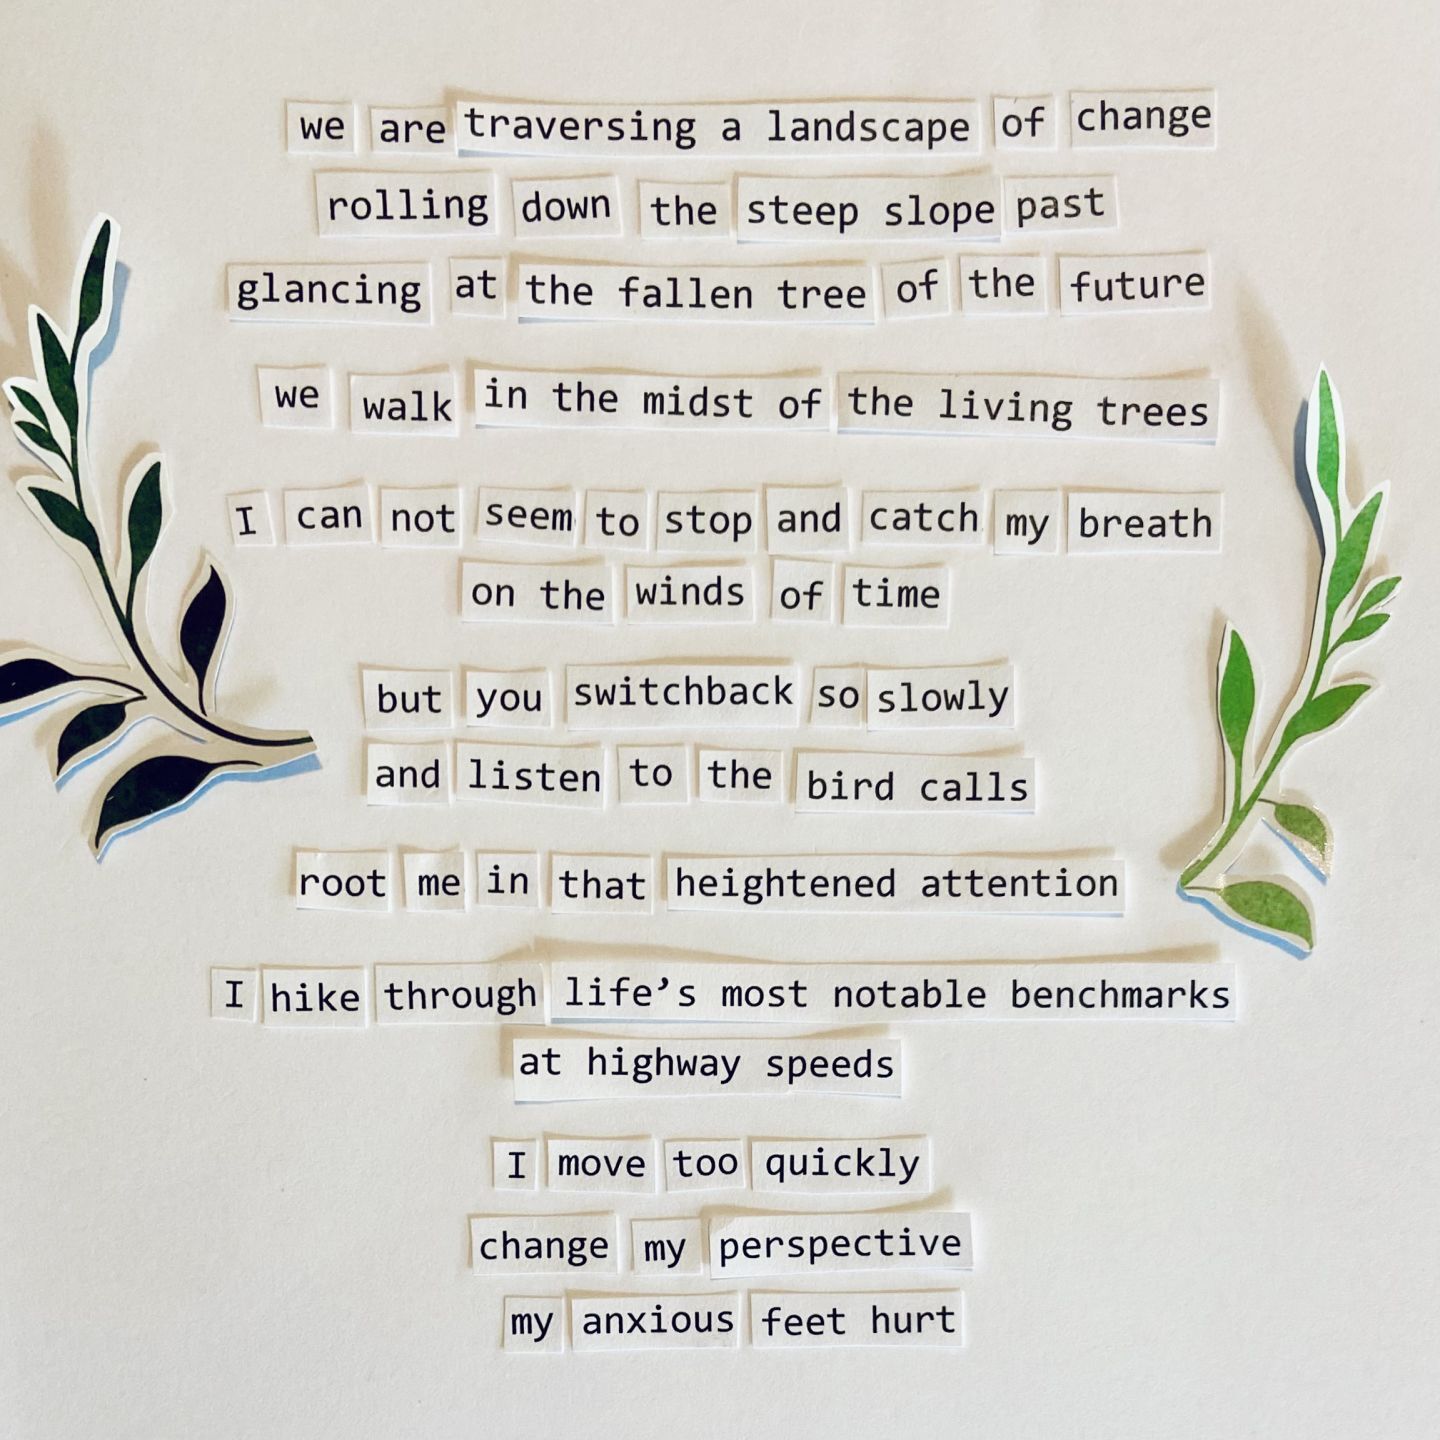 we are traversing a landscape of change
rolling down the steep slope past
glancing at the fallen tree of the future
we walk in the midst of the living trees
I can not seem to stop and catch my breath
on the winds of time
but you switchback so slowly
and listen to the bird calls
root me in that heightened attention
I hike through life’s most notable benchmarks
at highway speeds
I move too quickly
change my perspective
my anxious feet hurt